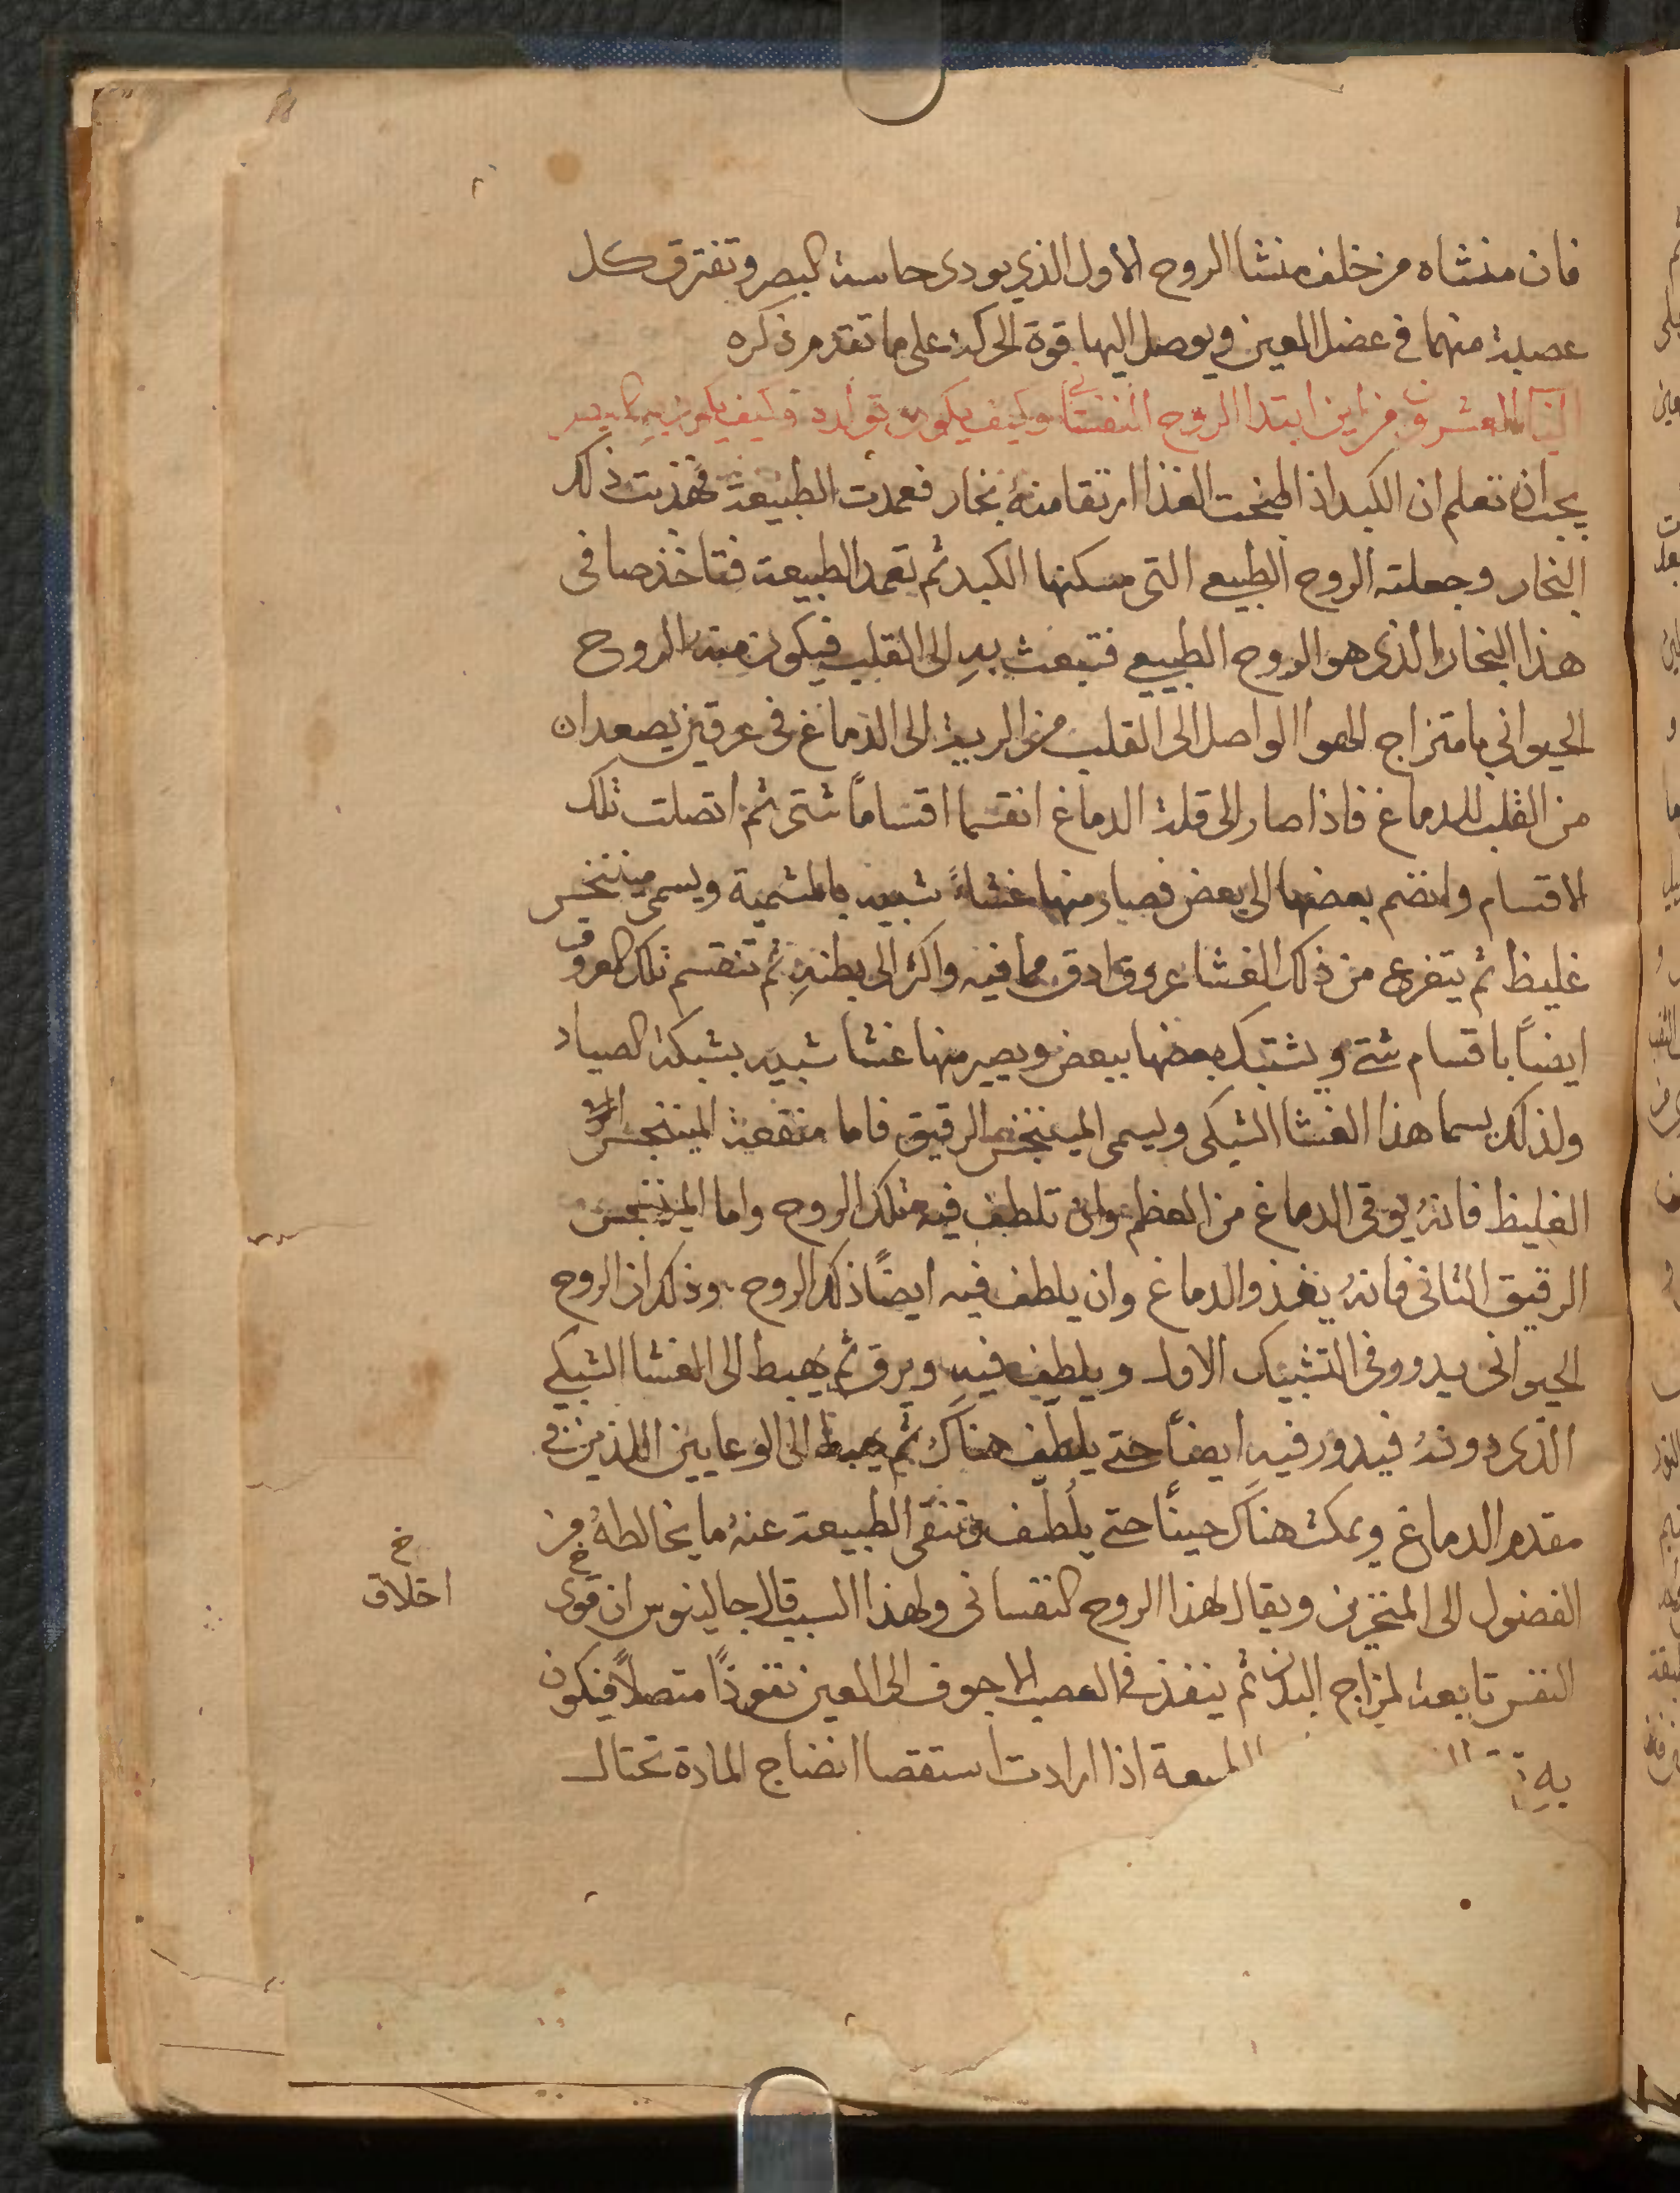 فان منشاه من خلف منشا الروح الاول الذي يودى حاسة البصر وتفترق كل
عصبة منهما في عضل العين ويوصل اليها قوة الحركة على ما تقدم ذكره
الباب العشرون من اين ابتدا الروح النفساني وكيف يكون تولده وكيف يكون به البصر
يجب ان تعلم ان الكبد اذا طبخت الغذا ارتقا منه بخار فعمدت الطبيعة فهذبت ذلك
البخار وجعلته الروح الطبيعي التى مسكنها الكبد ثم تعمد الطبيعة فتاخذ صافى
هذا البخار الذى هو الروح الطبيعي فتبعث به الى القلب فيكون منه الروح
الحيواني بامتزاج الهوا الواصل الى القلب من الرية الى الدماغ فى عرقين يصعدان
من القلب للدماغ فاذا صار الى قلة الدماغ انقسما اقتساماً شتى ثم اتصلت تلك
الاقسام وانضم بعضها الى بعض فصار منها غشاءً شبيه بالمشمية ويسمى مينننجس
غليظ ثم يتفرع من ذلك الغشا عروق ادق مما فيه واكثر الى بطنه ثم تنقسم تلك العروق
ايضاً باقسام شتى ويشتبك بعضها ببعض ويصير منها غشا شبيه بشبكة الصياد
ولذلك يسما هذا الغشا الشبكى ويسمى المينننجس الرقيق فاما منفعة المينننجس
الغليظ فانه يوقى الدماغ من العظم وان تلطف فيه تلك الروح واما المينننجس
الرقيق الثانى فانه يغذو الدماغ وان يلطف فيه ايضاً ذلك الروح وذلك ان الروح
الحيوانى يدور وفى التشبيك الاول ويلطف فيه ويرق ثم يهبط الى الغشا الشبكي
الذى دونه فيدور فيه ايضاً حتى يلطف هناك ثم يهبط الى الوعايين اللذين في
مقدم الدماغ ويمكث هناك حيناً حتى يلطف وتنقى الطبيعة عنه ما يخالطه من
الفضول الى المنخرين ويقال لهذا الروح النفسانى ولهذا السبب قال جالينوس ان قوى
خ
اخلاق
النفس تابعة لمزاج البدن ثم ينفذ في العصب الاجوف الى العين نفوذاً متصلاً فيكون
به اذا ارادت استقصا انضاج المادة تحتال